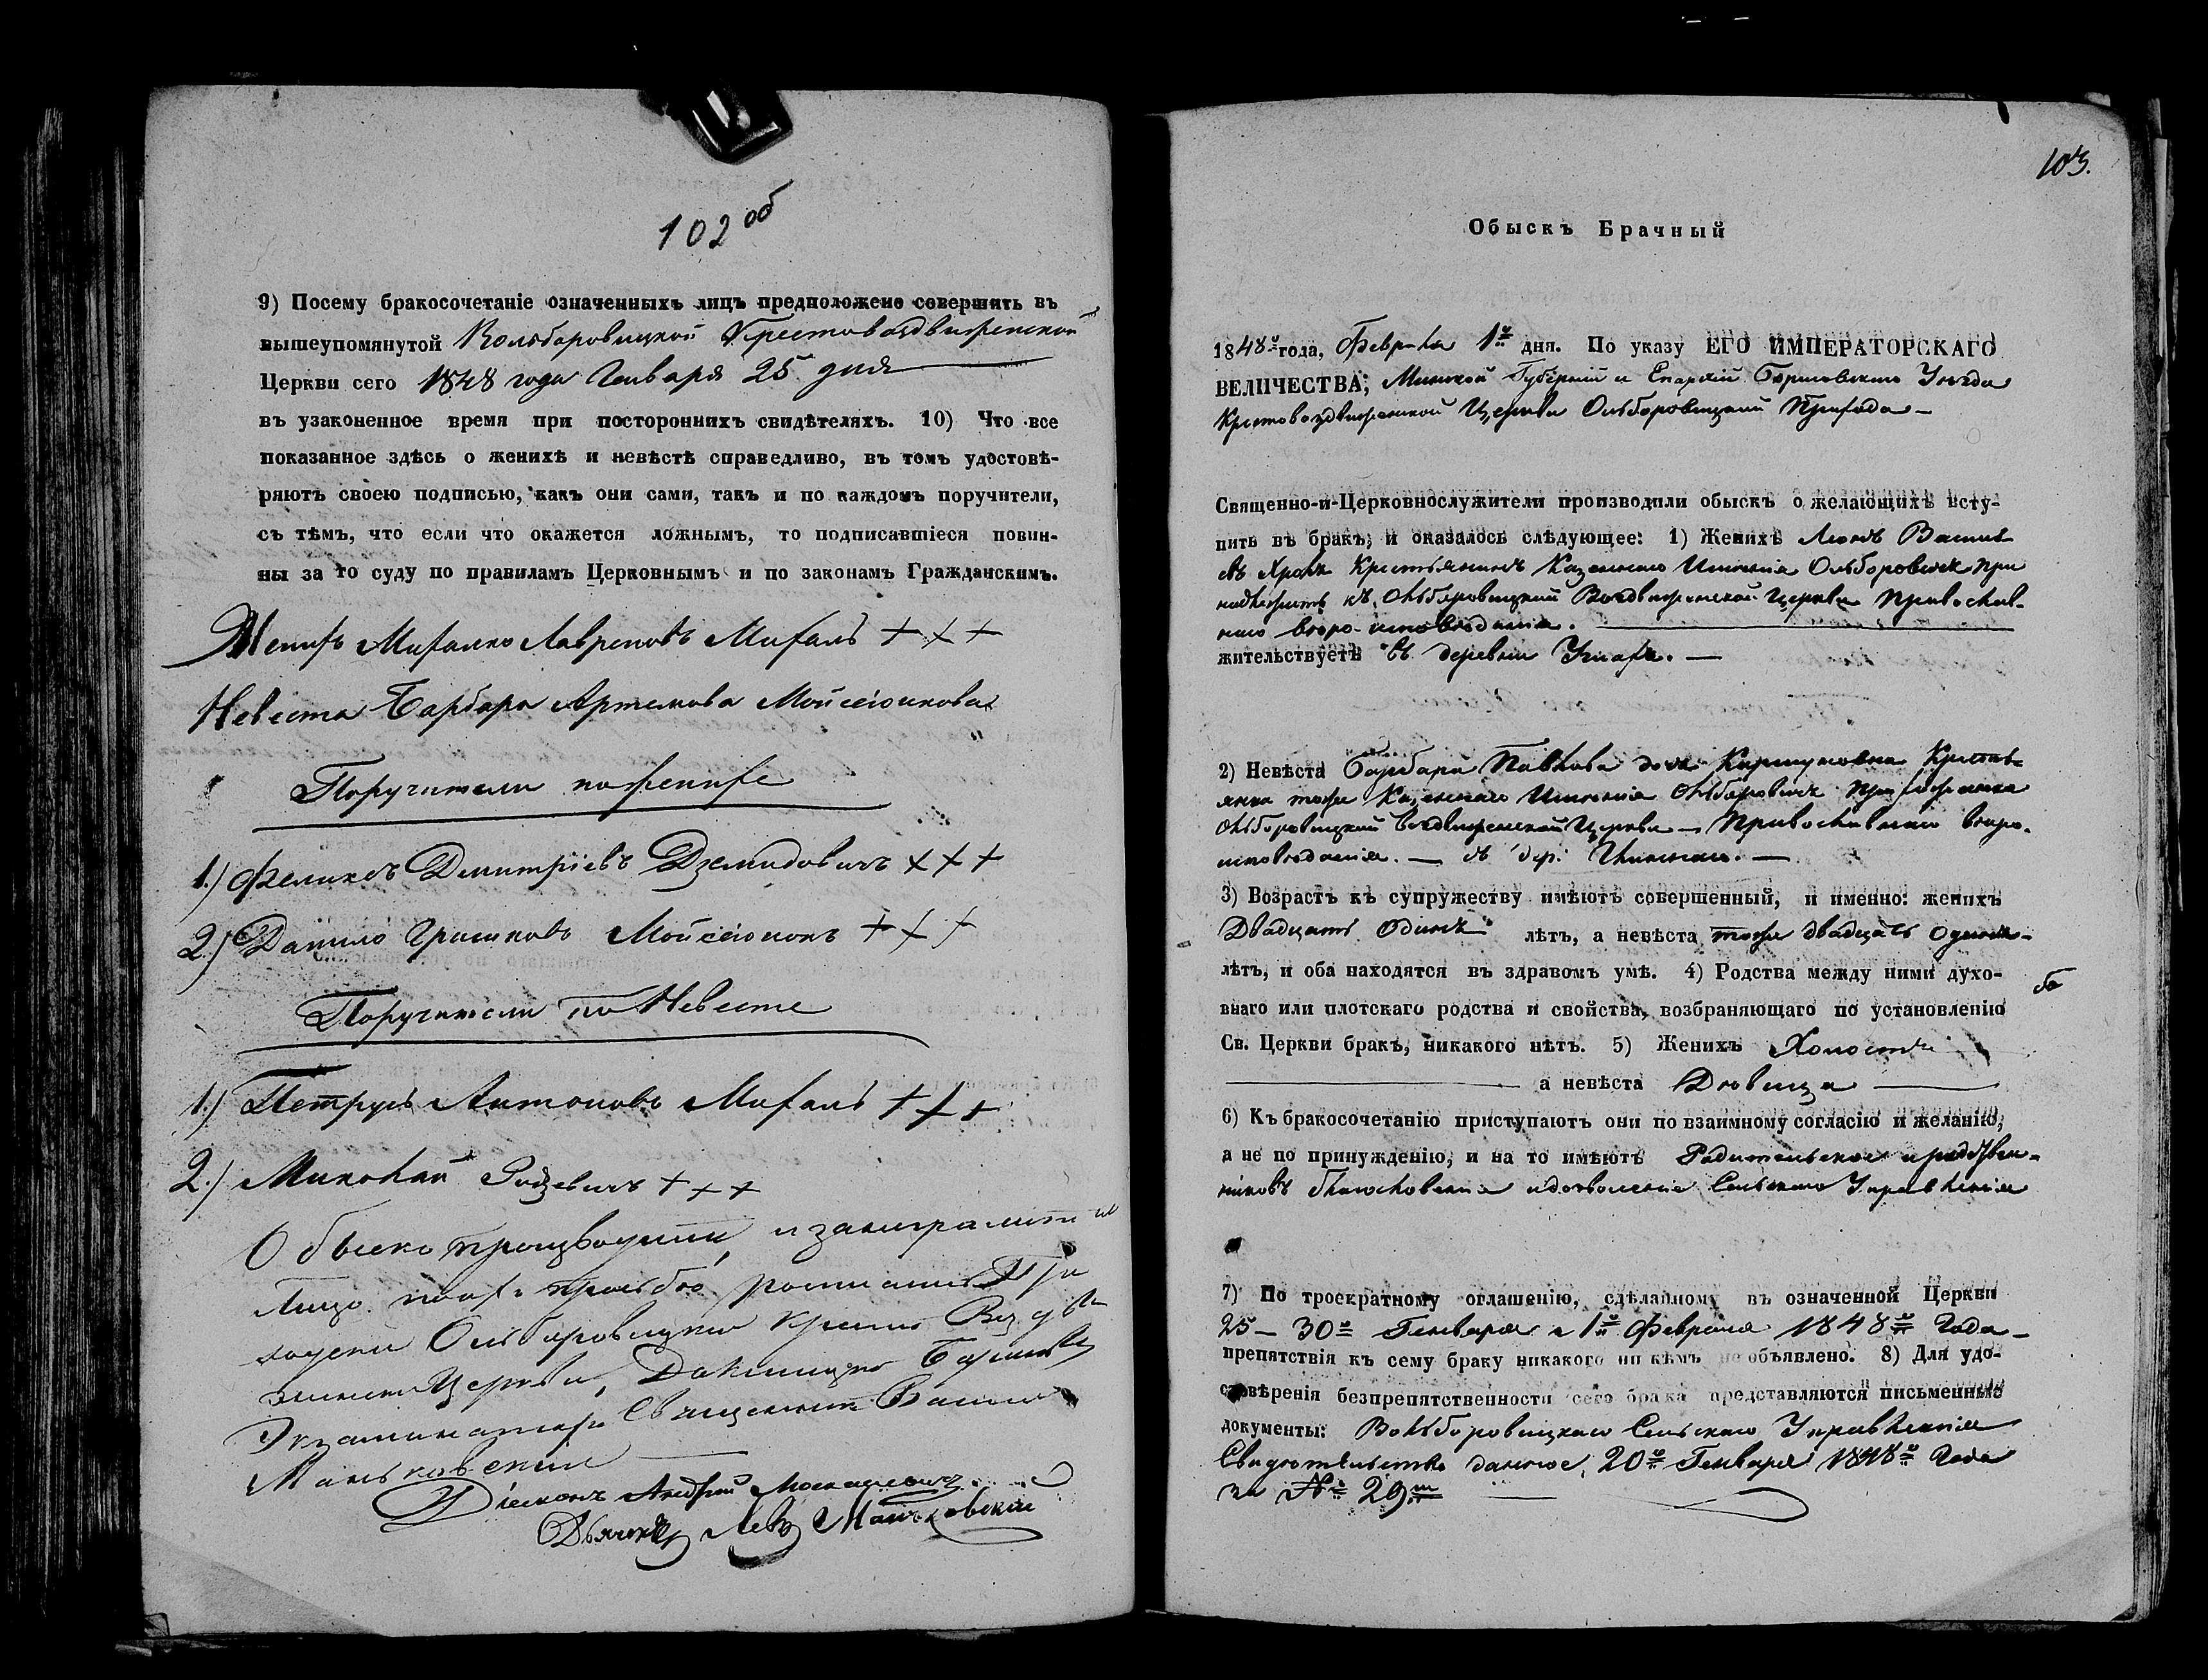 102 об
9) Посему бракосочетаніе означенныхъ лицъ предположено совершить въ
вышеупомянутой Вольборовицкой Крестовоздвиженской
Церкви сего 1848 года Генваря 25 дня
въ узаконенное время при постороннихъ свидѣтеляхъ. 10) Что все
показанное здѣсь о женихѣ и невѣстѣ справедливо, въ томъ удостовѣ-
ряютъ своею подписью, какъ они сами, такъ и по каждомъ поручители,
съ тѣмъ, что если что окажется ложнымъ, то подписавшіеся повин-
ны за то суду по правиламъ Церковнымъ и по законамъ Гражданскимъ.
Женихъ Михалко Лавреновъ Михаль + + +
Невеста Барбара Артемова Мойсеюнкова
Поручители по женихе
1.) Феликсъ Дмитріевъ Дземидовичъ + + +
2.) Данило Гришковъ Мойсеюнокъ + + +
Поручители по Невесте
1.) Петрусь Антоновъ Михаль + + +
2.) Миколай Родзевичъ + + +
Обыскъ производили и за неграмотны
Лицо по ихъ просьбѣ росписались При
Ольборовицкой Кресто Воздви
женской Церкви,
Священникъ
Маньковскій
Діаконъ Андрей
Дьячекъ Левъ Маньковскій
103.
Обыскъ Брачный
1848го года, Февраля 1го дня. По указу ЕГО ИМПЕРАТОРСКАГО
ВЕЛИЧЕСТВА, Минской Губерніи и Епархіи Борисовского Уезда
Крестовоздвиженской Церкви Ольборовицкій Прихода —
Священно-и-Церковнослужители производили обыскъ о желающихъ всту-
пить въ бракъ, и оказалось слѣдующее: 1) Женихъ Леонъ Василь
евъ Крестьянинъ Казеннаго Имѣнія Ольборовичъ при
надлежитъ къ Ольборовицкой Воздвиженской Церкви Православ-
наго вѣро-исповѣданія.
жительствуетъ въ деревни
2) Невѣста Барбара Павлова дочь Крестья
янка тоже Казеннаго Имѣнія Ольборовичъ прихожанка
Ольборовицкой Воздвиженской Церкви — Православнаго вѣро-
исповѣданія. — въ дер:
3) Возрастъ къ супружеству имѣютъ совершенный, и именно: женихъ
Двадцать Одинъ лѣтъ, а невѣста тоже двадцать одинъ —
лѣтъ, и оба находятся въ здравомъ умѣ. 4) Родства между ними духо-
внаго или плотскаго родства и свойства, возбраняющаго по установленію
Св. Церкви бракъ, никакого нѣтъ. 5) Женихъ Холостъ
а невѣста Дѣвица
6) Къ бракосочетанію приступаютъ они по взаимному согласію и желанію,
а не по принужденію, и на то имѣютъ Родительское и родствен-
никовъ благословеніе и дозволеніе Сельскаго Управленія
7) По троекратному оглашенію, сдѣланному въ означенной Церкви
25 — 30го Генваря и 1го Февраля 1848го Года —
препятствія къ сему браку никакого ни кѣмъ не объявлено. 8) Для удо-
стовѣренія безпрепятственности сего брака представляются письменные
документы: Вольборовицкаго Сельскаго Управленія
Свидѣтельство данное, 20го Генваря 1848го Года
за № 29м